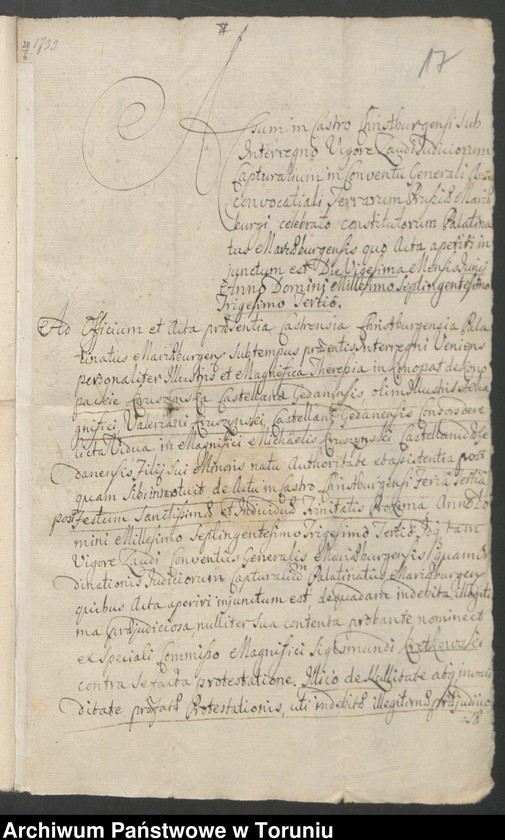 20/6 1733
17
Actum in Castro Christburgensi sub
Interregno Vigore Laudi Judiciorum
Capturalium in Conventu Generali
Convocatiali Terrarum Prussiæ Mariæ
burgi celebrato constitutorum Palatina
tus Mariæburgensis quo Acta aperiri in
junctum est Die Vigesima Mensis Junij
Anno Domini Millesimo Septingentesimo
Trigesimo Tertio.
Ad Officium et Acta præsentia Castrensia Christburgensia Pala
tinatus Mariæburgen: sub tempus præsentis Interregni Veniens
personaliter Illustris et Magnifica Theresia in Konopat de Kono
packie Kruszynska Castellana Gedanensis, olim Illustris et Ma
gnifici Valeriani Kruszynski, Castellani Gedanensis
licta Vidua in Magnifici Michaelis Kruszynski Castellanidæ Ge
danensis Filij Sui Minoris natu Authoritate et assistentia post
quam Sibi innotuit de Actu in Castro Christburgensi Feria Tertia
post Festum Sanctissimæ et Individuæ Trinitatis Proxima Anno Do
mini Millesimo Septingentesimo Trigesimo Tertio, tam
Vigore Laudi Conventus Generalis Mariæburgensis quam
dinationis Judiciorum Capturalium Palatinatus Mariæburgen:
quibus Acta aperiri injunctum est, de quadam indebita, illegiti
ma Præjudiciosa, nulliter sua contenta probante nomine et
ex speciali Commisso Magnifici Sigismundi Kretkowski
contra se facta protestatione, Illico de Nullitate atq invali
ditate præfatæ Protestationis, uti indebitæ illegitimæ præjudicio
sæ
Archiwum Państwowe w Toruniu